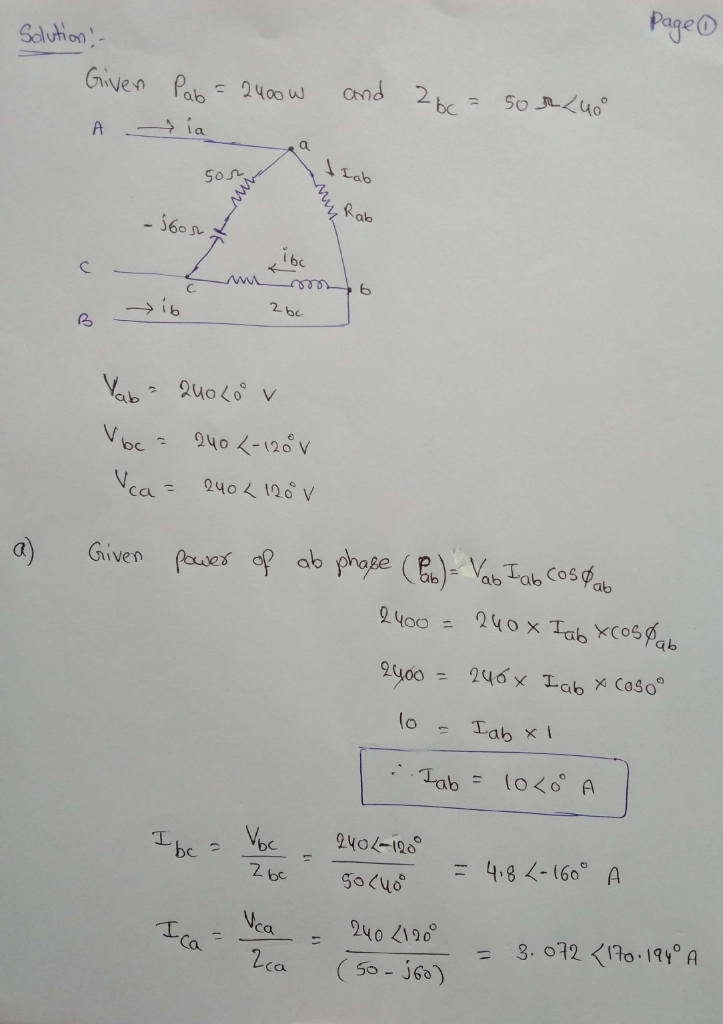 Page ①
Solution:-
Given Pab = 2400W and Zbc = 50 Ω<40°
A → ia
a
50Ω
↓ Iab
Rab
-j60Ω
ibc
←
C
c
b
→ ib
Zbc
B
Vab = 240<0° V
Vbc = 240 <-120° V
Vca = 240 < 120° V
a) Given power of ab phase (Pab) = Vab Iab cosφab
2400 = 240 x Iab x cosφab
2400 = 240 x Iab x cos0°
10 = Iab x 1
∴ Iab = 10<0° A
Ibc = Vbc / Zbc = 240<-120° / 50<40° = 4.8 <-160° A
Ica = Vca / Zca = 240 <120° / (50 - j60) = 3.072 <170.194° A